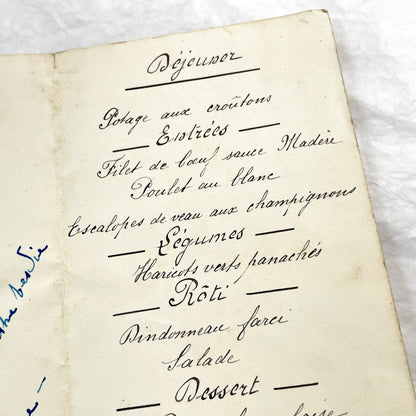 Déjeuner
Potage aux croûtons
Entrées
Filet de bœuf sauce Madère
Poulet au blanc
Escalopes de veau aux champignons
Légumes
Haricots verts panachés
Rôti
Dindonneau farci
Salade
Dessert